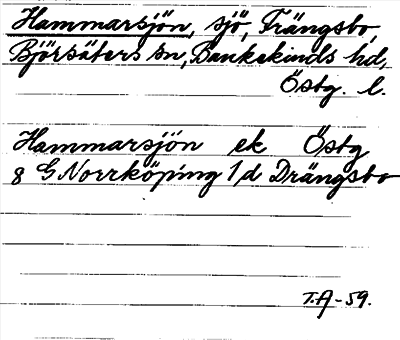 Hammarsjön, sjö, Trängsbo,
Björsäters sn, Bankekinds hd,
Östg. l.
Hammarsjön ek Östg
8 G Norrköping 1/d Drängsbo
T.A-59.